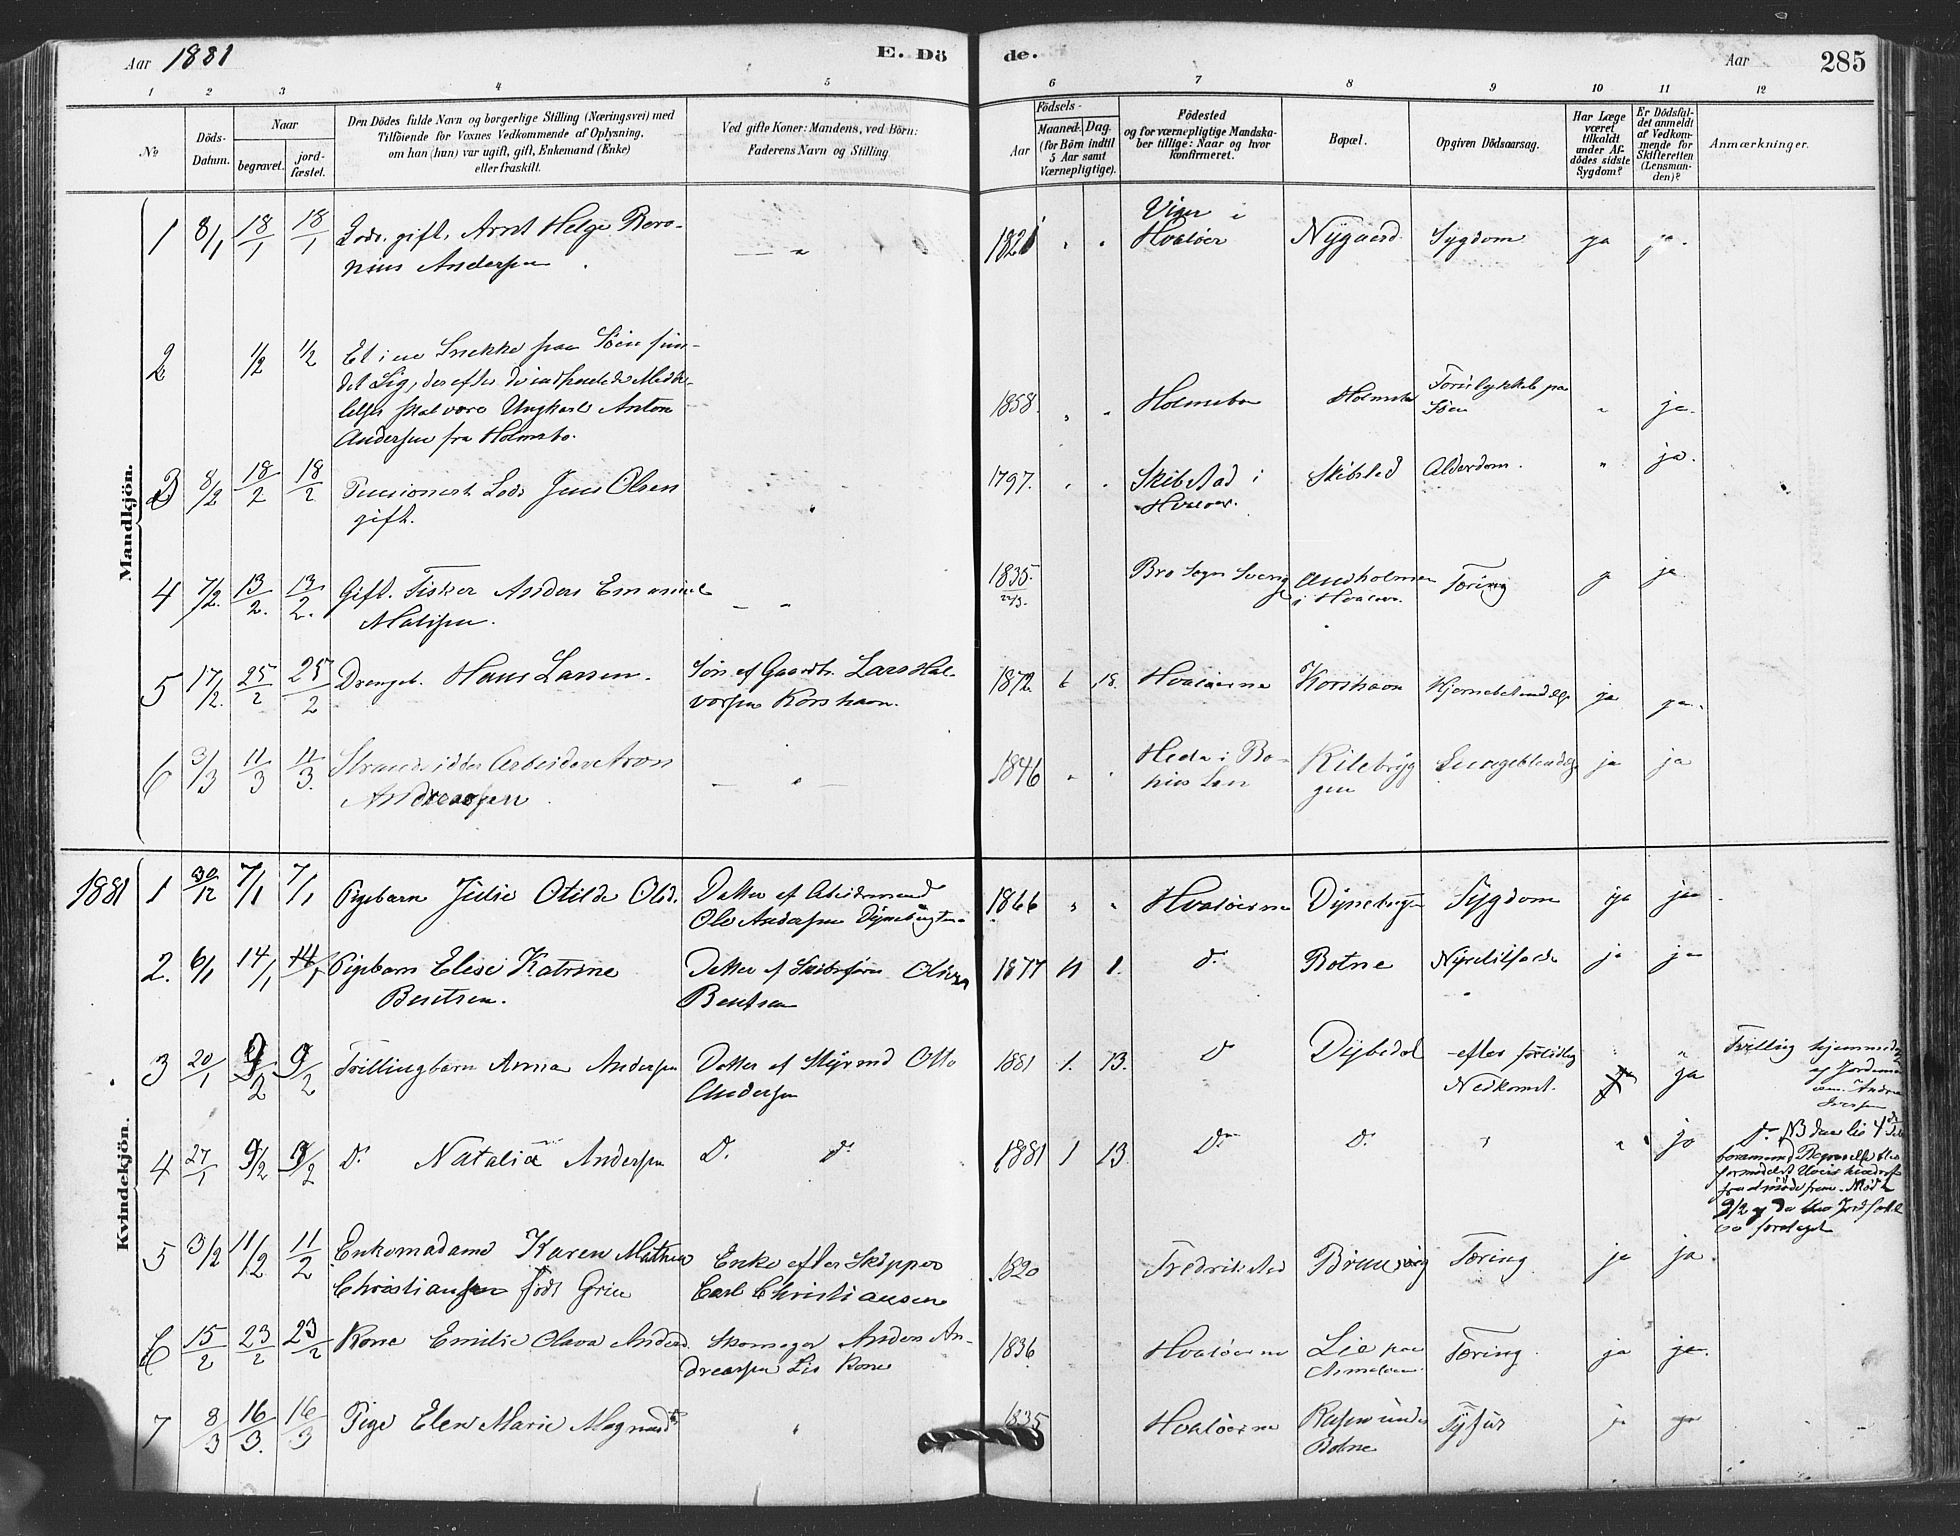 Aar 1881
E. Dö
de.
Aar
285
1 2 3 4 5 6 7 8 9 10 11 12
No
Döds-Datum.
Naar
begravet.
jord-fæstet.
Den Dödes fulde Navn og borgerlige Stilling (Næringsvei) med
Tilföiende for Voxnes Vedkommende af Oplysning,
om han (hun) var ugift, gift, Enkemand (Enke)
eller fraskilt.
Ved gifte Koner: Mandens, ved Börn:
Faderens Navn og Stilling.
Födsels-
Aar
Maaned. Dag.
(for Börn indtil
5 Aar samt
Værnepligtige).
Födested
og for værnepligtige Mandska-
ber tillige: Naar og hvor
konfirmeret.
Bopæl.
Opgiven Dödsaarsag.
Har Læge
været
tilkaldt
under Af-
dödes sidste
Sygdom?
Er Dödsfal-
det anmeldt
af Vedkom-
mende for
Skifteretten
(Lensman-
den)?
Anmærkninger.
Mandkjön.
1 8/1 18/1 18/1 Lods. gift. Arnt Helge Bero-
nius Andersen
1821 Viger i
Hvaløer Nygaard Sygdom ja ja.
2 1/2 1/2 Et i en Snekke paa Søen fun-
det Lig, der efter de indhentede Medde-
lelser skal være Ungkarl Anton
Andersen fra Holmsbo.
1858. Holmsbo Holmsbo Forulykket paa
Søen " ja.
3 8/2 18/2 18/2 Pensioneret Lods Jens Olsen
gift.
1797. Skibstad i
Hvaløer. Skibstad Alderdom. " ja.
4 7/2. 13/2. 13/2. Gift. Fisker Anders Emanuel
Matisen.
1835. 22/3. Bro Sogn Sverig Andholmen
i Hvaløer. Tæring ja.
5 17/2. 25/2 25/2 Drengeb. Hans Larsen. Søn af Gaardbr. Lars Hal-
vorsen Korshavn.
1872. 6 18. Hvaløerne Korshavn Hjernebetændelse ja ja.
6 3/3 11/3 11/3. Strandsidder Arbeider Aron
Andreassen
1846 Heda i Bo-
hus Len Kilebryg
gen Lungebtændelse ja ja
Kvindekjön.
1881 1 30/12 7/1 7/1 Pigebarn Julie Otilde Olsd. Datter af Arbeidsmand
Ole Andersen Dynebugten
1866 " " Hvaløerne Dynebugten Sygdom ja ja
2. 6/1 14/1 14/1 Pigebarn Elise Katrine
Bentsen. Datter af Skibsfører Oliver
Bentsen
1877 11 1. do Botne Nyretilfælde ja ja
3 20/1 9/2 9/2 Tvillingbarn Anna Andersen Datter af Styrmd Otto
Andersen
1881 1. 13. do Dybedal efter førtidlig
Nedkomst. " ja Tvilling hjemmedøbt
af Jordemo
Andrea
Iversen
4 27/1 9/2 9/2 do Natalia Andersen D. do
1881 1 13. do do " " ja do
9/2 foretaget
5 3/2 11/2 11/2 Enkemadame Karen Mathea
Christiansen født Grün Enke efter Skipper
Carl Christiansen
1820 Fredrikstad Tæring. ja ja.
6 15/2 23/2 23/2 Kone Emilie Olava Andersd. Skomager Anders An-
dreassen Lie Kone
1836 Hvaløerne Lie paa
Asmaløen Tæring. ja ja.
7 8/3 16/3. 16/3 Pige Elen Marie Magnusd "
1835 Hvaløerne under
Botne Tyfus ja ja